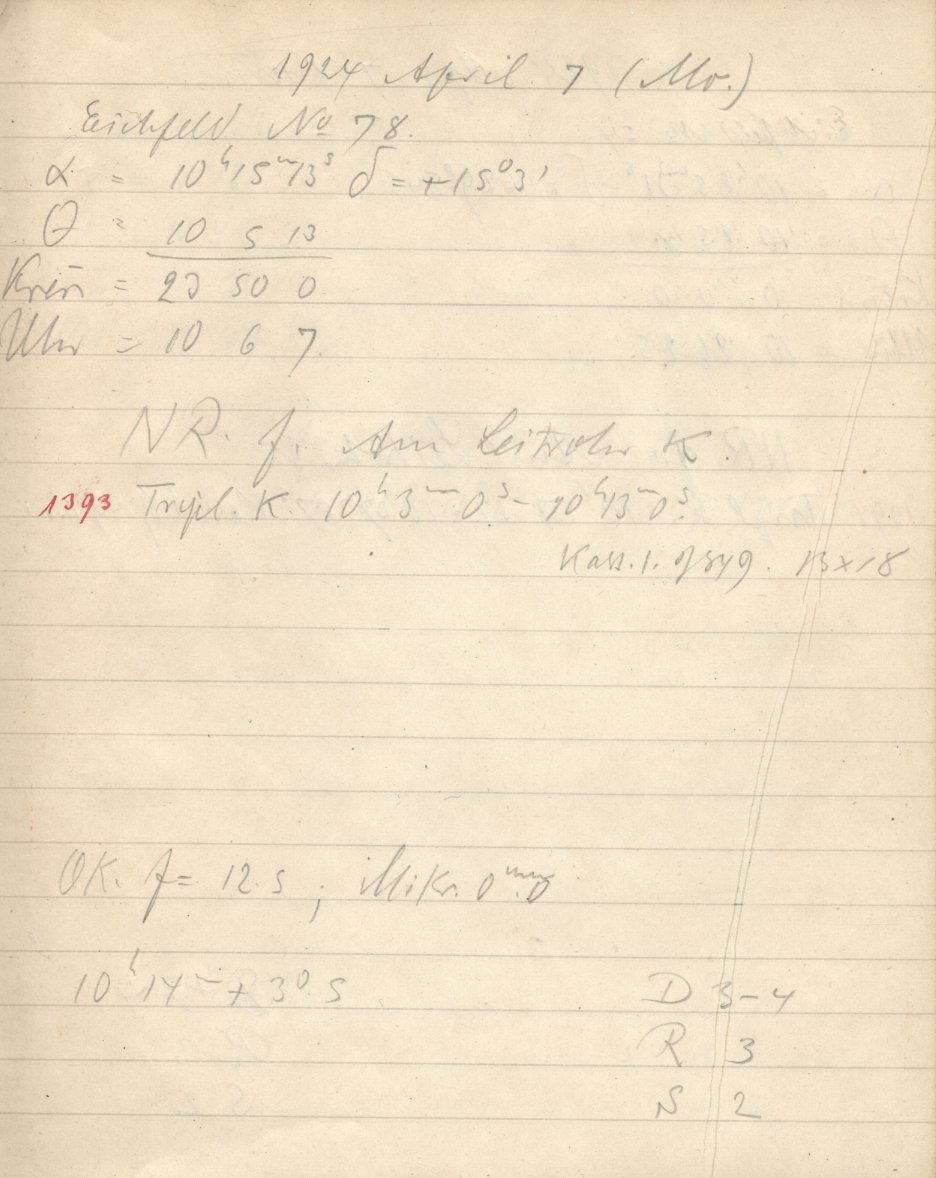 1924 April 7 (Mo.)
Eichfeld No 78.
α = 10ʰ15ᵐ13ˢ δ = +15°3'
θ = 10 5 13
= 23 50 0
Uhr = 10 6 7.
NR. f. Am Leitrohr K.
1393 Tripl. K. 10ʰ3ᵐ0ˢ - 10ʰ13ᵐ0ˢ.
Kass. 1. 13x18
OK. f = 12.5 ; Mikr. 0ᵐᵐ.0
10ʰ14ᵐ + 3°.5
D 3-4
R 3
S 2